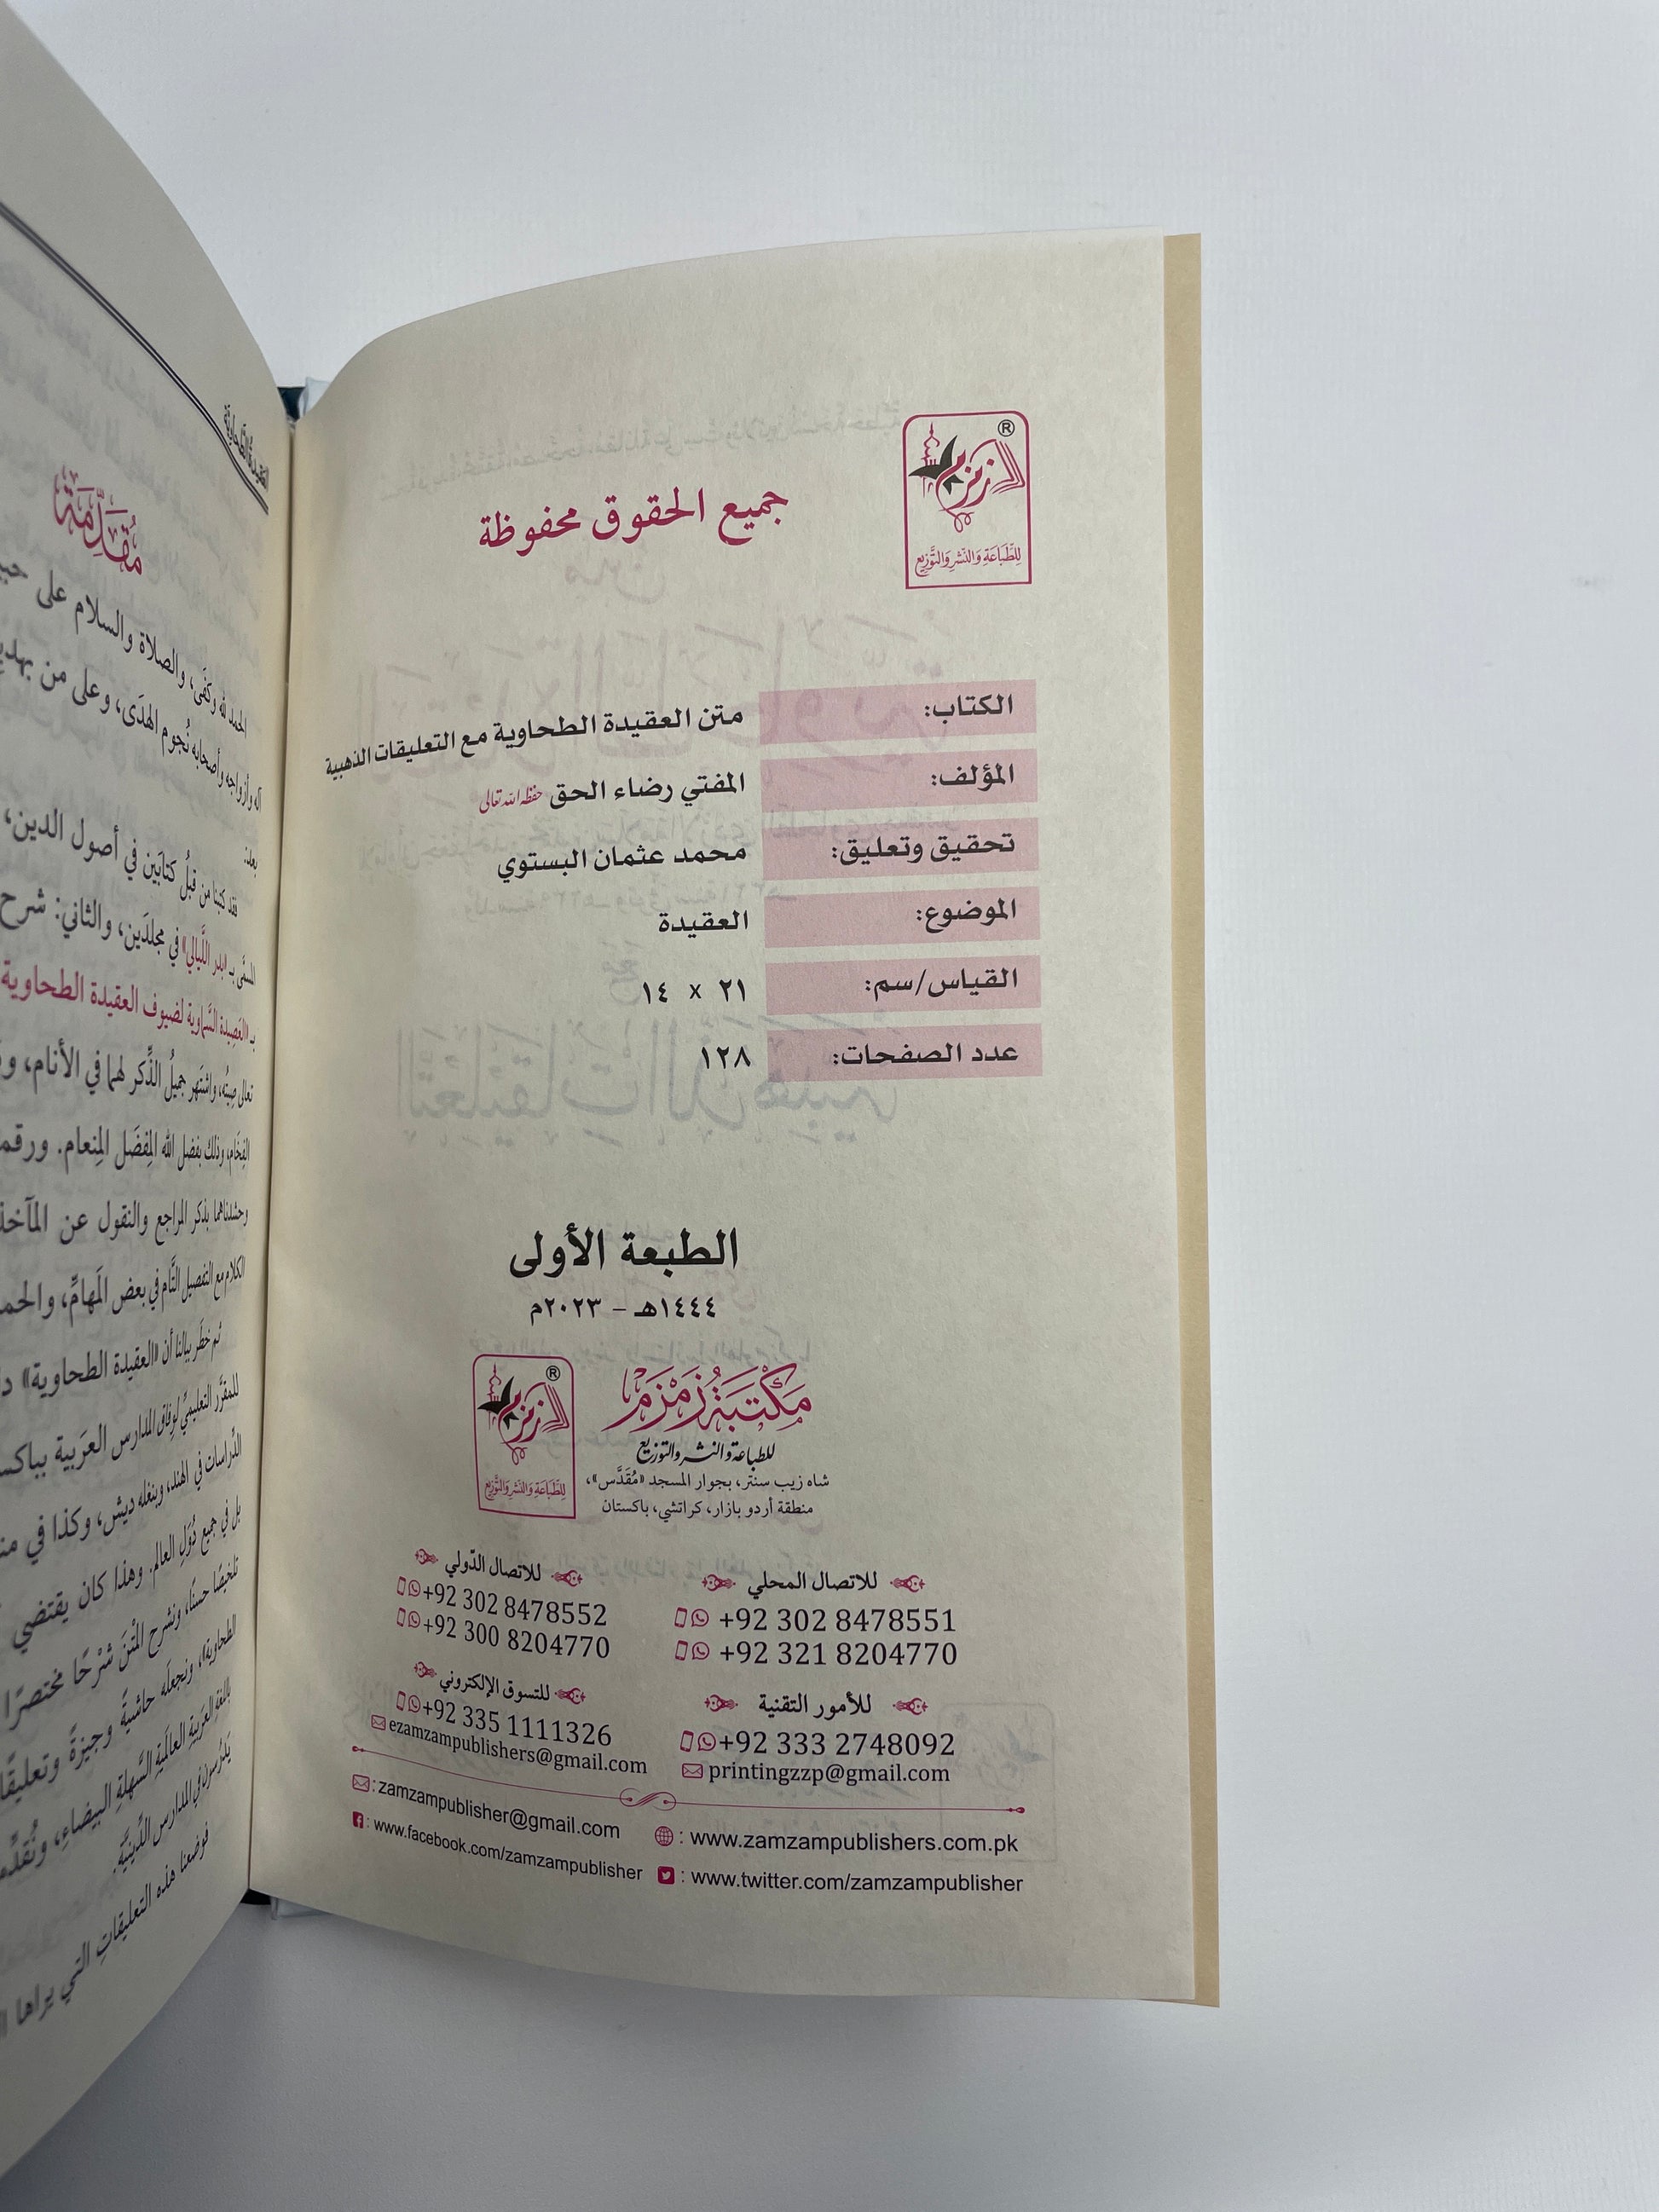 جميع الحقوق محفوظة
زمزم ®
للطباعة والنشر والتوزيع
الكتاب: متن العقيدة الطحاوية مع التعليقات الذهبية
المؤلف: المفتي رضاء الحق حفظه الله تعالى
تحقيق وتعليق: محمد عثمان البستوي
الموضوع: العقيدة
القياس/سم: ٢١ × ١٤
عدد الصفحات: ١٢٨
الطبعة الأولى
١٤٤٤هـ – ٢٠٢٣م
مَكْتَبَةُ زَمْزَم
للطباعة والنشر والتوزيع
شاه زيب سنتر، بجوار المسجد «مُقَدَّس»،
منطقة أردو بازار، كراتشي، باكستان
زمزم ®
للطباعة والنشر والتوزيع
للاتصال المحلي
+92 302 8478551
+92 321 8204770
للاتصال الدّولي
+92 302 8478552
+92 300 8204770
للأمور التقنية
+92 333 2748092
printingzzp@gmail.com
للتسوق الإلكتروني
+92 335 1111326
ezamzampublishers@gmail.com
: zamzampublisher@gmail.com
: www.zamzampublishers.com.pk
: www.facebook.com/zamzampublisher
: www.twitter.com/zamzampublisher
العقيدة الطحاوية
مُقَدِّمَة
الحمد لله وكَفَى، والصلاة والسلام على
آله وأزواجه وأصحابه نُجوم الهدَى، وعلى من
بعد:
فقد كتبنا من قبلُ كتابَين في أصول الدين،
المسمَّى بـ «بدر اللَّيالي» في مجلدَين، والثاني: شرح
بـ «العَصِيدة السَّماوية لضيوف العقيدة الطحاوية
تعالى صِيتُه، واشتهر جميلُ الذِّكر لهما في الأنام،
الفِخَام، وذلك بفضل الله المِفضَل المِنعام. ورقمنا
وحشدناهما بذكر المراجع والنقول عن المآخذ
الكلام مع التفصيل التَّام في بعض المَهامِّ، والحمد
ثم خطَر ببالنا أن «العقيدة الطحاوية»
للمقرَّر التعليميِّ لوِفاق المدارس العَرَبية
الدِّراسات في الهند، وبنغله ديش، وكذا في
بل في جميع دُوَل العالم. وهذا كان يقتضي
تلخيصًا حسنًا، ونشرح المَتْنَ شَرْحًا مختصرًا
الطحاوية)، ونجعلَه حاشيةً وجيزةً
باللغة العَرَبيةِ العالَميَّةِ السَّهلةِ البيضاءِ،
يَدْرُسون في المدارس الدِّينيَّة.
فوضعنا هذه التعليقاتِ التي يراها